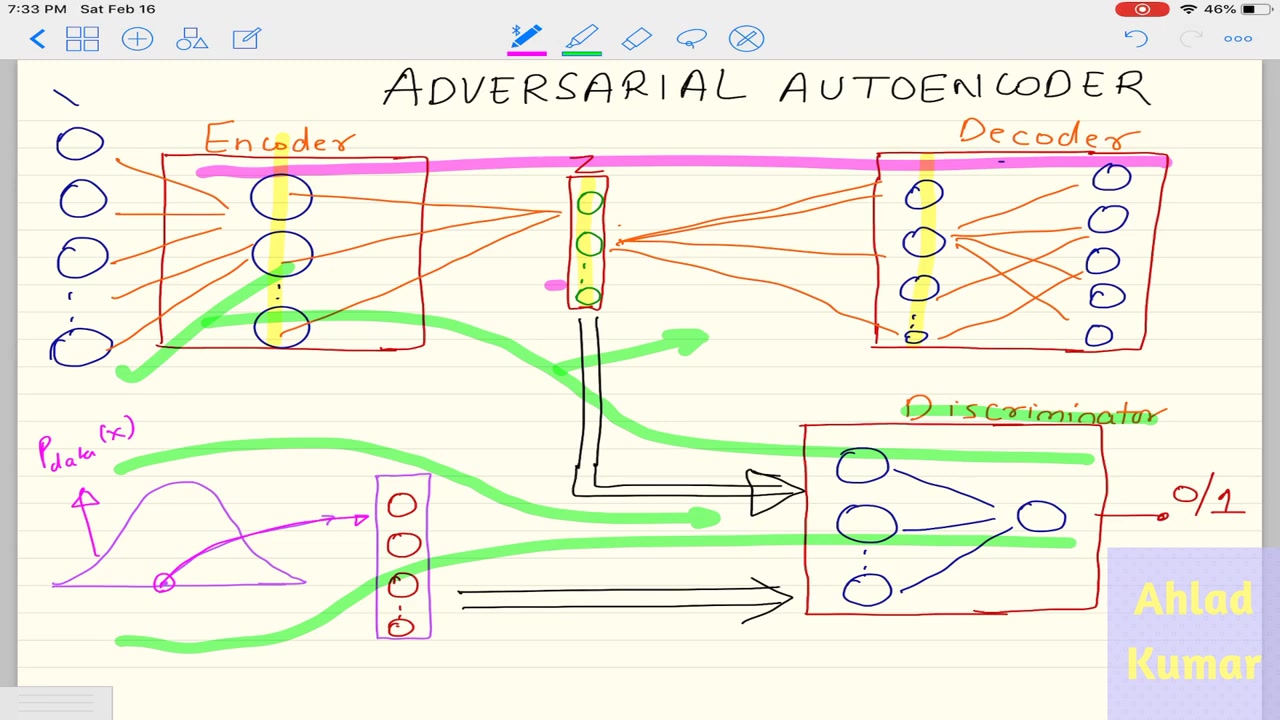 7:33 PM Sat Feb 16
46%
ADVERSARIAL AUTOENCODER
Encoder
Z
Decoder
Discriminator
Pdata(x)
0/1
Ahlad
Kumar